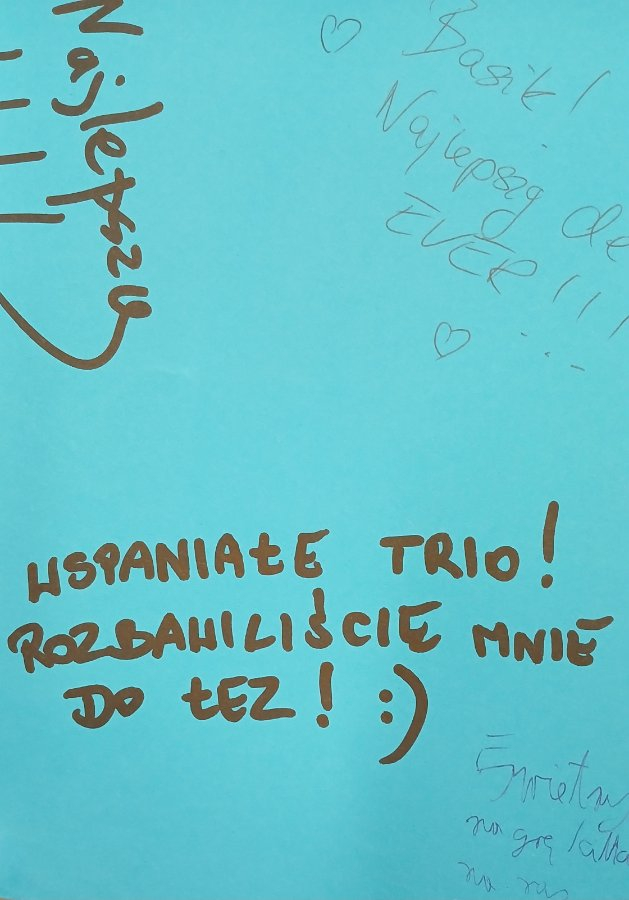 Najlepszy
!!!
Basik!
Najlepszy de
EVER!!!
WSPANIAŁE TRIO!
ROZBAWILIŚCIE MNIE
DO ŁEZ! :)
Świetny
na grę
na